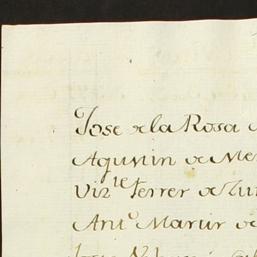 Jose de la Rosa
Agustin de Me
Viz.te Ferrer de Zu
Ant.o Martir de